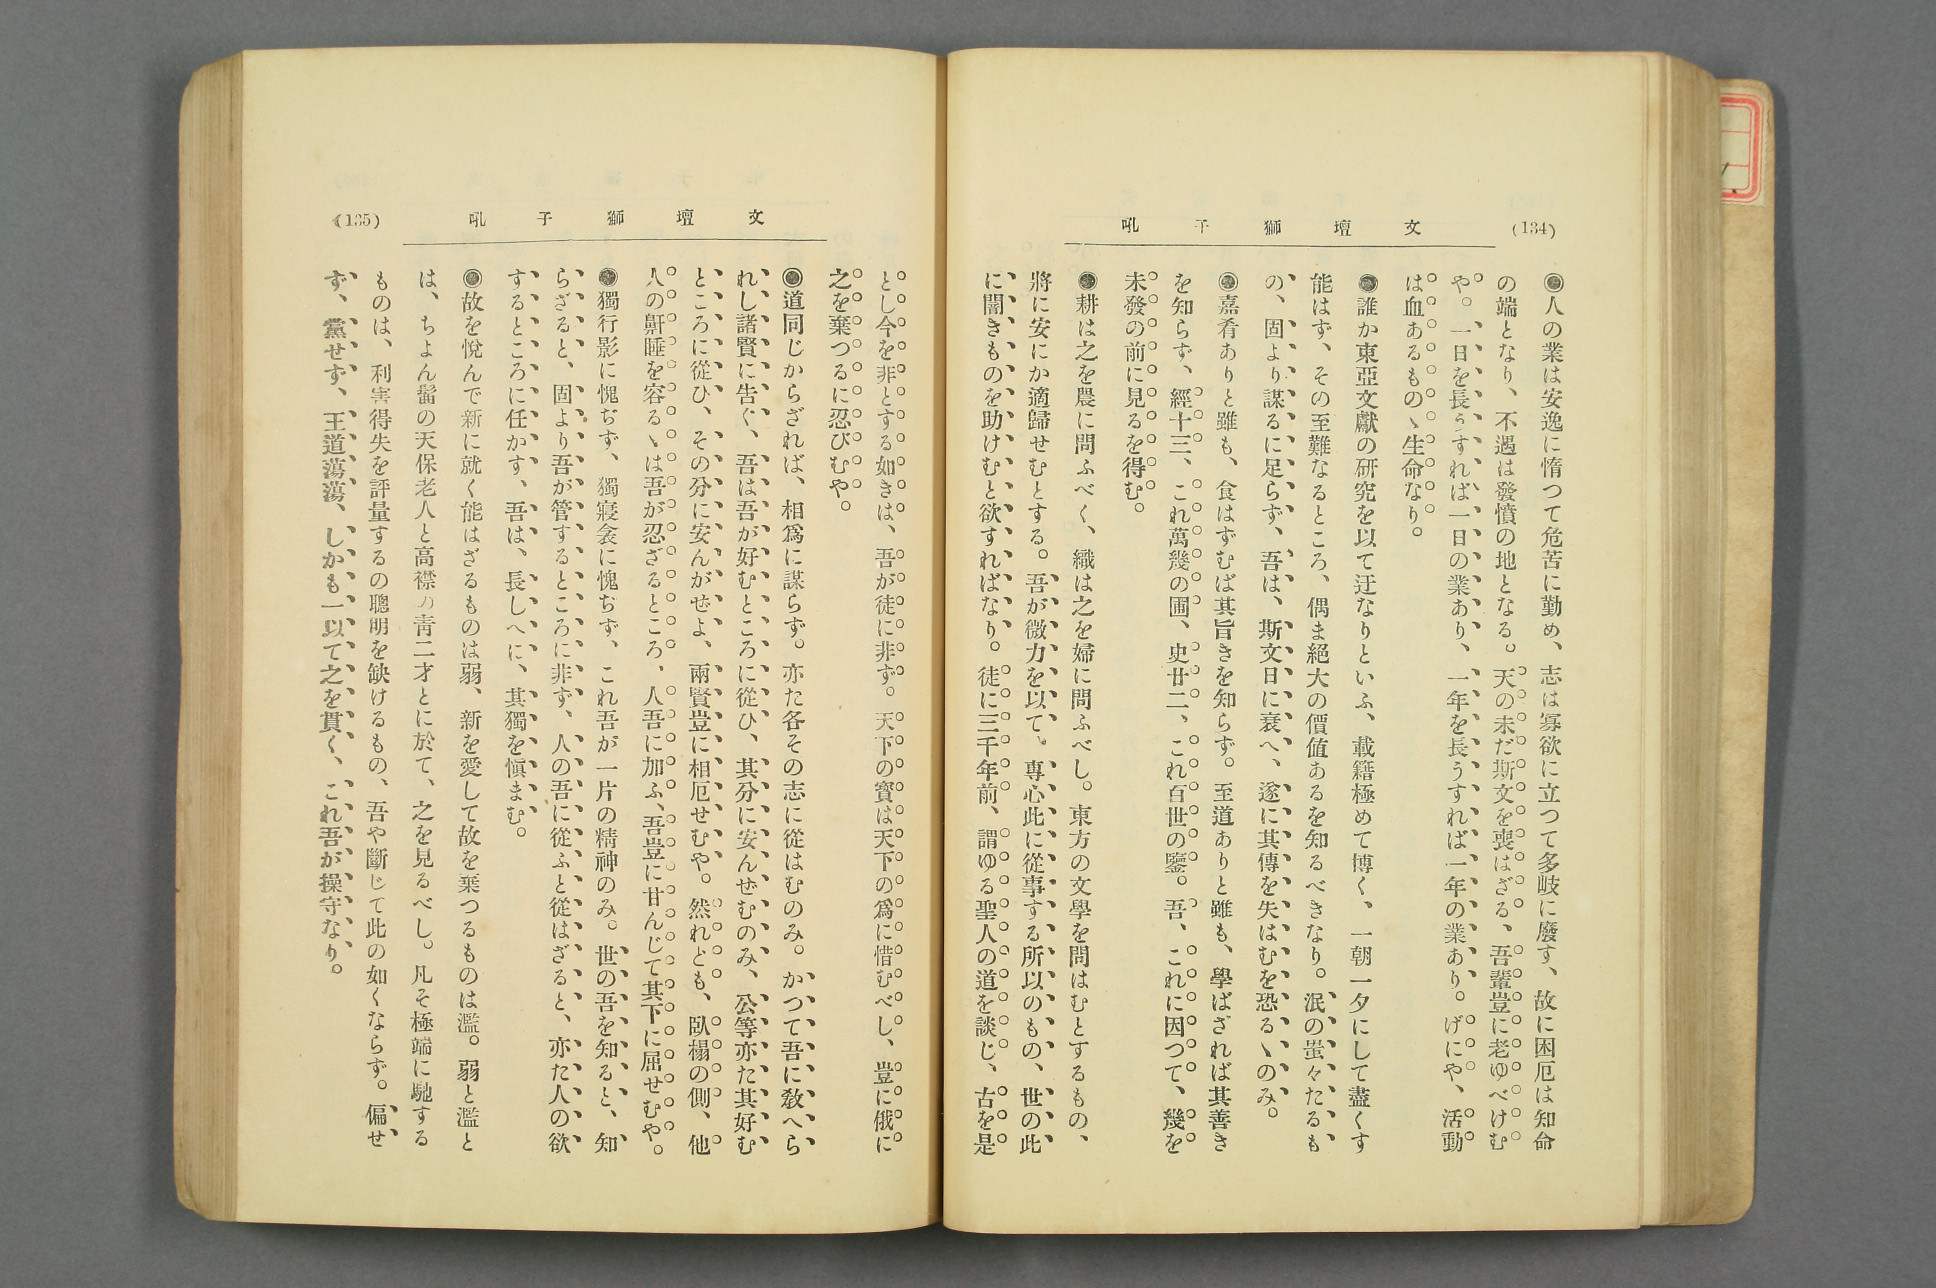 (134)
文壇獅子吼
◉人の業は安逸に惰つて危苦に勤め、志は寡欲に立つて多岐に廢す、故に困厄は知命
の端となり、不遇は發憤の地となる。天の未だ斯文を喪はざる、吾輩豈に老ゆべけむ
や。一日を長うすれば一日の業あり、一年を長うすれば一年の業あり。げにや、活動
は血あるものゝ生命なり。
◉誰か東亞文獻の研究を以て迂なりといふ、載籍極めて博く、一朝一夕にして盡くす
能はず、その至難なるところ、偶ま絕大の價値あるを知るべきなり。泯の蚩々たるも
の、固より謀るに足らず、吾は、斯文日に衰へ、遂に其傳を失はむを恐るゝのみ。
◉嘉肴ありと雖も、食はずむば其旨きを知らず。至道ありと雖も、學ばざれば其善き
を知らず、經十三、これ萬幾の圃、史廿二、これ百世の鑒。吾、これに因つて、幾を
未發の前に見るを得む。
◉耕は之を農に問ふべく、織は之を婦に問ふべし。東方の文學を問はむとするもの、
將に安にか適歸せむとする。吾が微力を以て、專心此に從事する所以のもの、世の此
に闇きものを助けむと欲すればなり。徒に三千年前、謂ゆる聖人の道を談じ、古を是
(135)
文壇獅子吼
とし今を非とする如きは、吾が徒に非ず。天下の寳は天下の爲に惜むべし、豈に俄に
之を棄つるに忍びむや。
◉道同じからざれば、相爲に謀らず。亦た各その志に從はむのみ。かつて吾に敎へら
れし諸賢に吿ぐ、吾は吾が好むところに從ひ、其分に安んせむのみ、公等亦た其好む
ところに從ひ、その分に安んがせよ、兩賢豈に相厄せむや。然れとも、臥榻の側、他
人の鼾睡を容るゝは吾が忍ざるところ、人吾に加ふ、吾豈に甘んじて其下に屈せむや。
◉獨行影に愧ぢず、獨寢衾に愧ぢず、これ吾が一片の精神のみ。世の吾を知ると、知
らざると、固より吾が管するところに非ず、人の吾に從ふと從はざると、亦た人の欲
するところに任かす、吾は、長しへに、其獨を愼まむ。
◉故を悅んで新に就く能はざるものは弱、新を愛して故を棄つるものは濫。弱と濫と
は、ちよん髷の天保老人と高襟の靑二才とに於て、之を見るべし。凡そ極端に馳する
ものは、利害得失を評量するの聰明を缺けるもの、吾や斷じて此の如くならず。偏せ
ず、黨せず、王道蕩蕩、しかも一以て之を貫く、これ吾が操守なり。